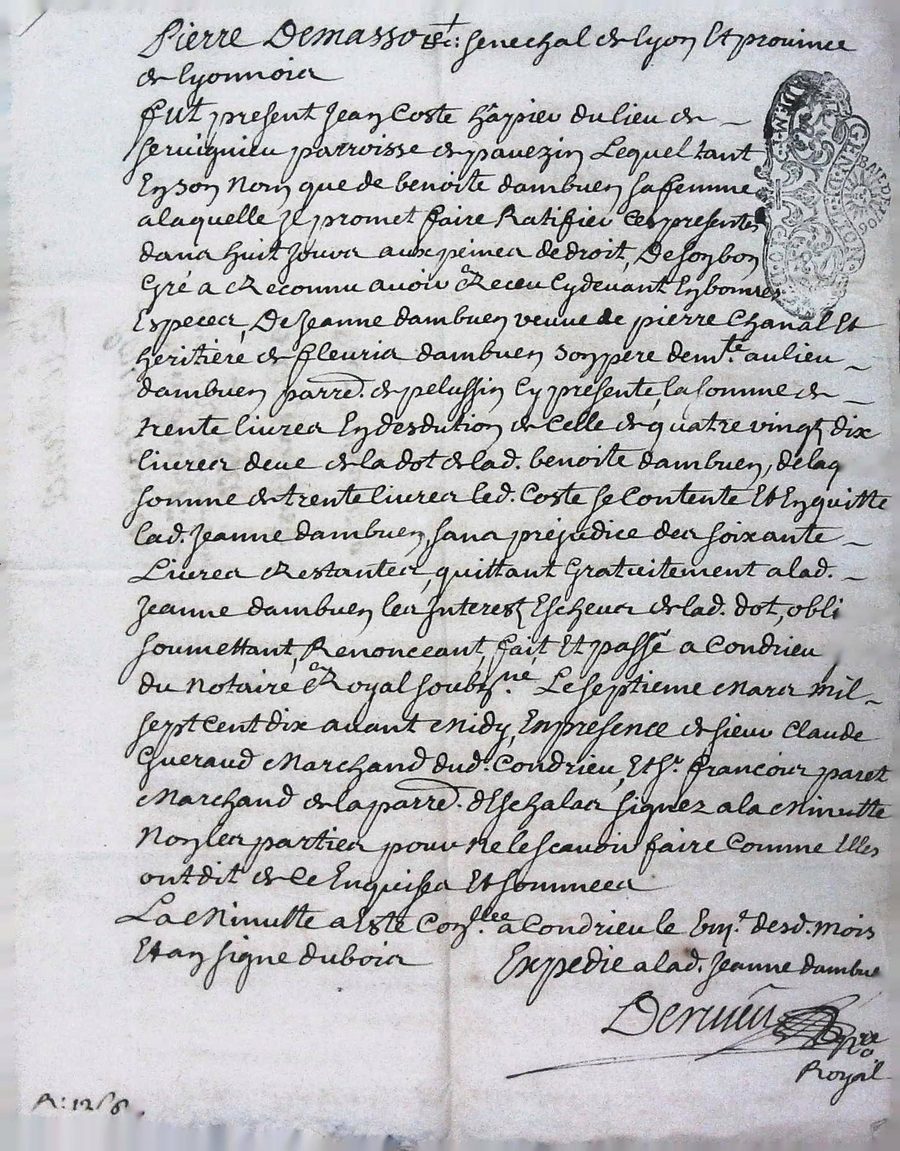 Pierre Demasso Sr: senechal de Lyon Et province
de Lyonnois
fut present Jean Coste hapier du lieu de
servignieu parroisse de pavezin Lequel tant
En son Nom que de benoite dambuen sa femme
a laquelle Je promet faire Ratifier Ces presentes
dans huit Jours aux peines de droit, De son bon
Gré a Reconnu avoir Receu Cy devant En bonnes
Especes, De Jeanne dambuen veuve de pierre Chanal Et
heritiere de fleuris dambuen son pere dem.te au lieu
dambuen parre. de pelussin Cy presente, la somme de
trente livres En desdution de Celle de quatre vingt dix
livres deue de la dot de lad. benoite dambuen, de laq
somme de trente livres led. Coste se Contente Et En quitte
lad. Jeanne dambuen, sans prejudice des soixante
Livres Restantes, quittant Gratuitement a lad.
Jeanne dambuen les Interest Escheus de lad. dot, obli
soumettant, Renonceant, fait Et passé a Condrieu
du Notaire Royal soubsné, Le septieme Mars mil
sept Cent dix avant Midy, En presence de sieur Claude
Gueraud Marchand dud. Condrieu, Et Sr. francois paret
Marchand de la parre. d'Eschalas signez a la Minutte
Non les parties pour ne le scavoir faire Comme Elles
ont dit de Ce Enquises Et sommees
La Minutte a Esté Con.lee a Condrieu le desd. mois
Et an signe dubois Expedie a lad. Jeanne dambue
Dervieu
Nore
Royal
GEN. D